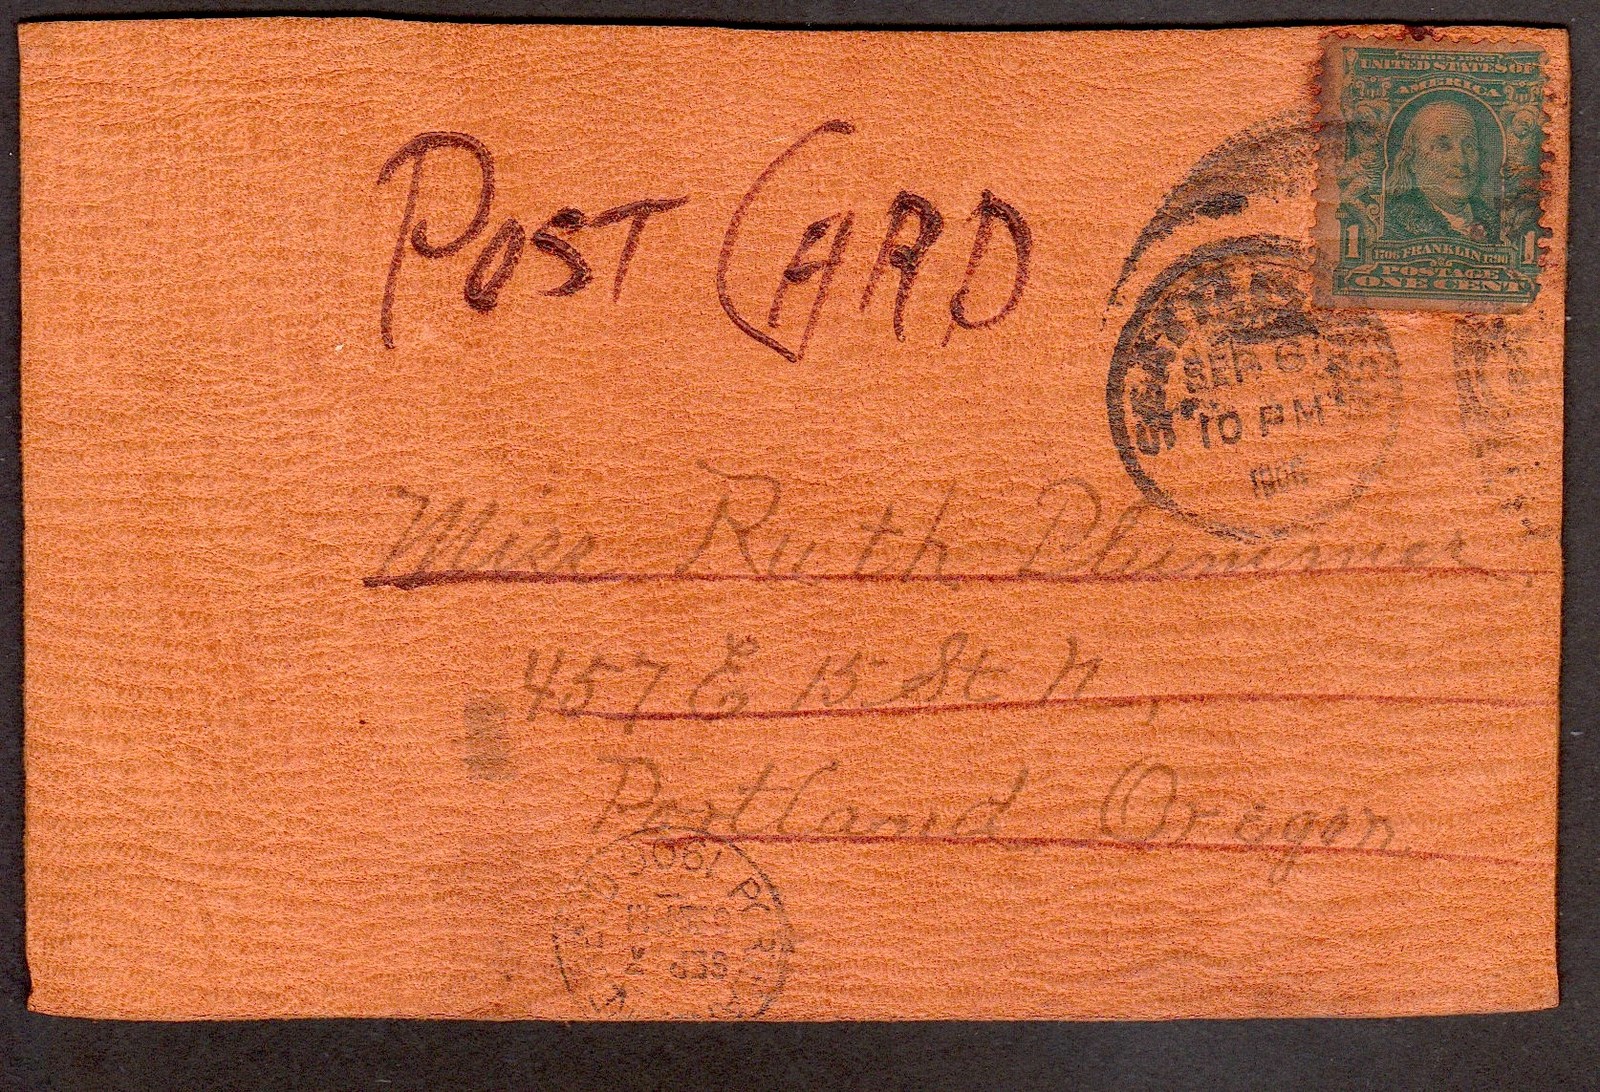 SERIES 1902
UNITED STATES OF
AMERICA
1 1
1706 FRANKLIN 1790
POSTAGE
ONE CENT
POST CARD
SEATTLE
SEP 6
10 PM
1906
Miss Ruth Plummer,
457 E 15 St N,
Portland Oregon
SEP
1906